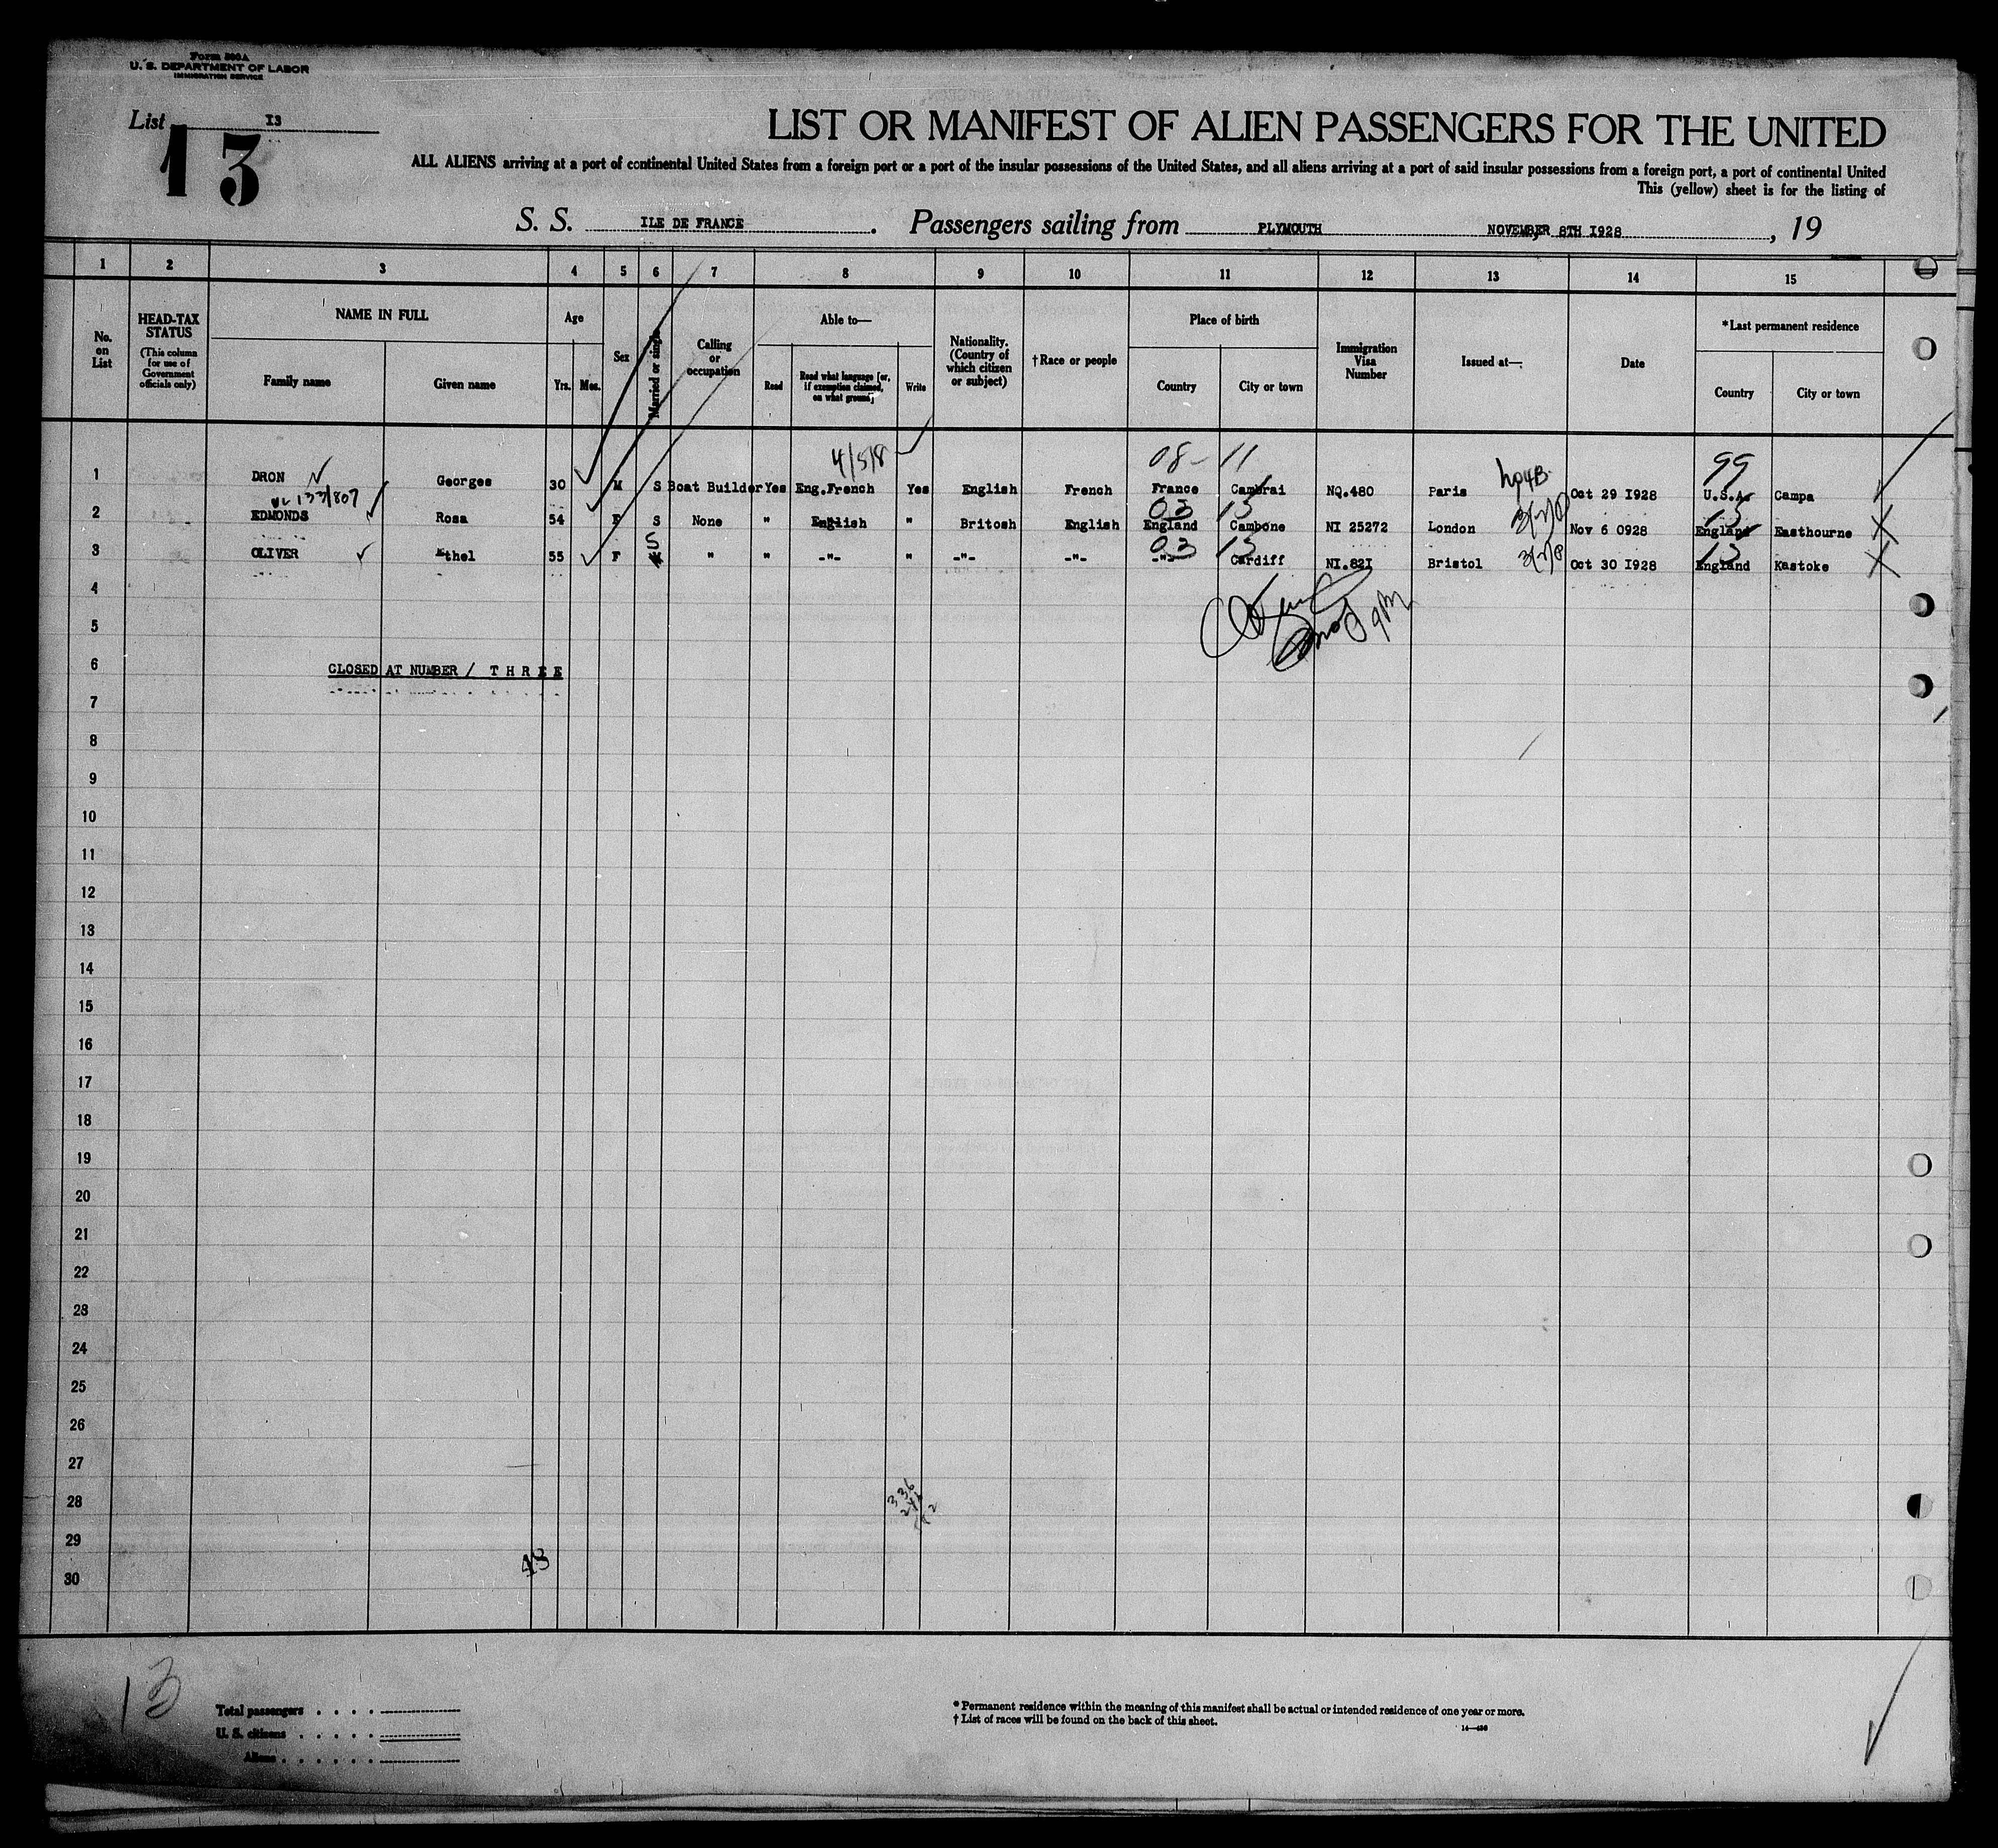 Form 500A
U. S. DEPARTMENT OF LABOR
IMMIGRATION SERVICE
List I3
13
LIST OR MANIFEST OF ALIEN PASSENGERS FOR THE UNITED
ALL ALIENS arriving at a port of continental United States from a foreign port or a port of the insular possessions of the United States, and all aliens arriving at a port of said insular possessions from a foreign port, a port of continental United
This (yellow) sheet is for the listing of
S. S. ILE DE FRANCE . Passengers sailing from PLYMOUTH NOVEMBER 8TH I928 , 19
1 2 3 4 5 6 7 8 9 10 11 12 13 14 15
No. on List
HEAD-TAX STATUS (This column for use of Government officials only)
NAME IN FULL
Family name Given name
Age
Yrs. Mos.
Sex
Married or single
Calling or occupation
Able to—
Read Read what language [or, if exemption claimed, on what ground] Write
Nationality. (Country of which citizen or subject)
† Race or people
Place of birth
Country City or town
Immigration Visa Number
Issued at—
Date
* Last permanent residence
Country City or town
4/5/8 08- 11 99
1 DRON Georges 30 M S Boat Builder Yes Eng.French Yes English French France Cambrai NQ.480 Paris Oct 29 I928 U.S.A. Campa
133/807 03 13 13
2 EDMONDS Rosa 54 F S None " English " Britosh English England Cambone NI 25272 London Nov 6 0928 England Easthourne
S 03 13 13
3 OLIVER thel 55 F " " -"- " -"- -"- -"- Cardiff NI.82I Bristol Oct 30 I928 England Kastoke
4
5
6 CLOSED AT NUMBER / T H R E E
7
8
9
10
11
12
13
14
15
16
17
18
19
20
21
22
23
24
25
26
27
28 336
29
48
30
13
Total passengers . . . .
U. S. citizens . . . . .
Aliens . . . . . .
* Permanent residence within the meaning of this manifest shall be actual or intended residence of one year or more.
† List of races will be found on the back of this sheet.
14—430